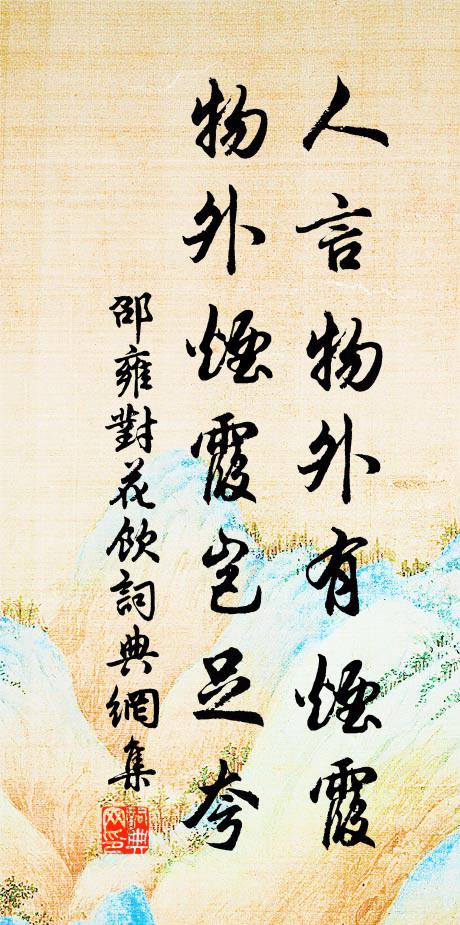 人言物外有煙霞
物外煙霞豈足夸
邵雍對花飲詞典網集
詞典
网印